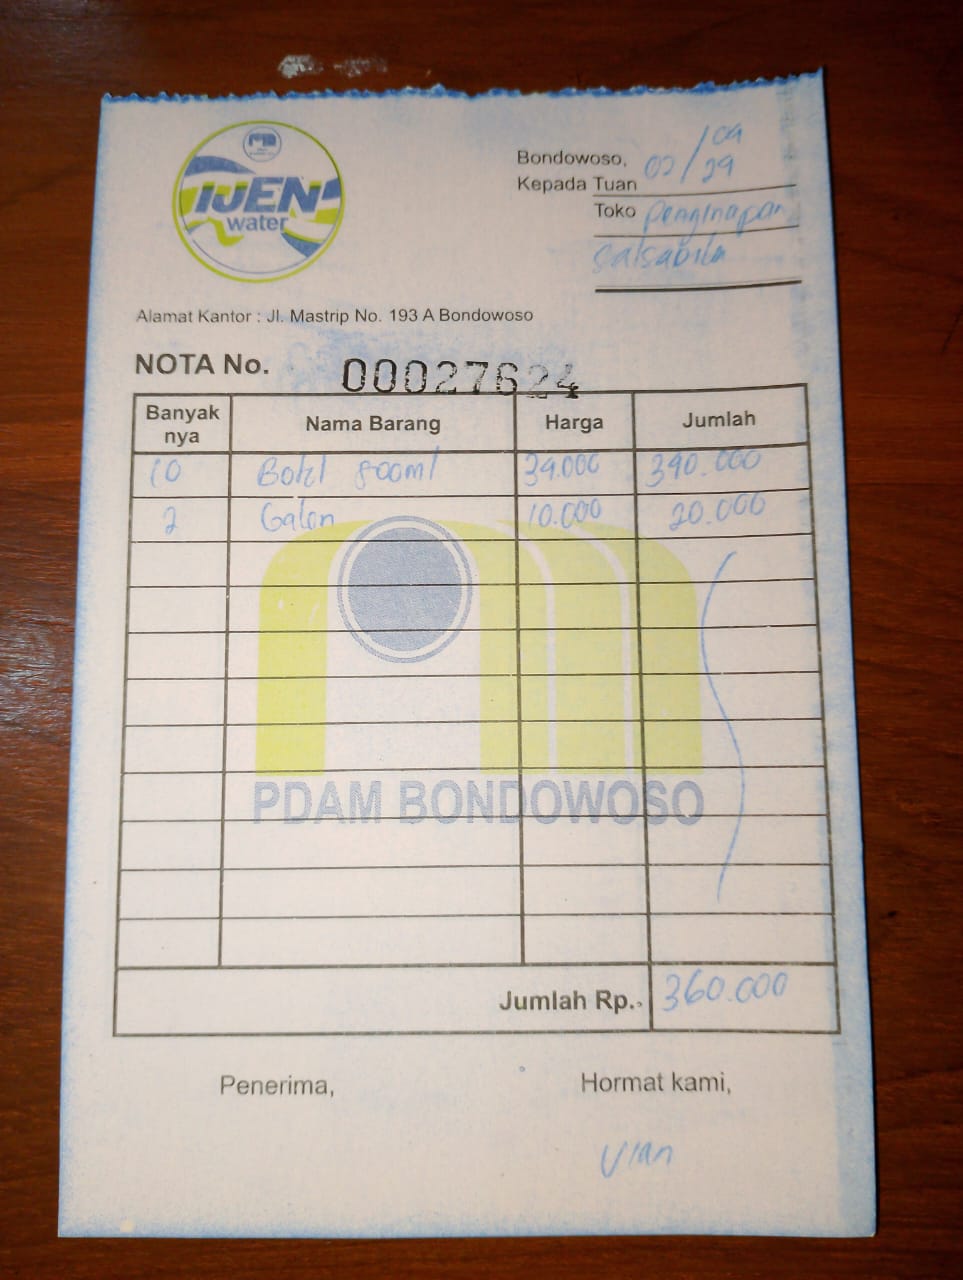 IJEN
water
Bondowoso, 02/04/24
Kepada Tuan
Toko Penginapan
Salsabila
Alamat Kantor : Jl. Mastrip No. 193 A Bondowoso
NOTA No. 00027624
Banyak nya Nama Barang Harga Jumlah
10 Botol 500ml 34.000 340.000
2 Galon 10.000 20.000
PDAM BONDOWOSO
Jumlah Rp. 360.000
Penerima, Hormat kami,
Vian